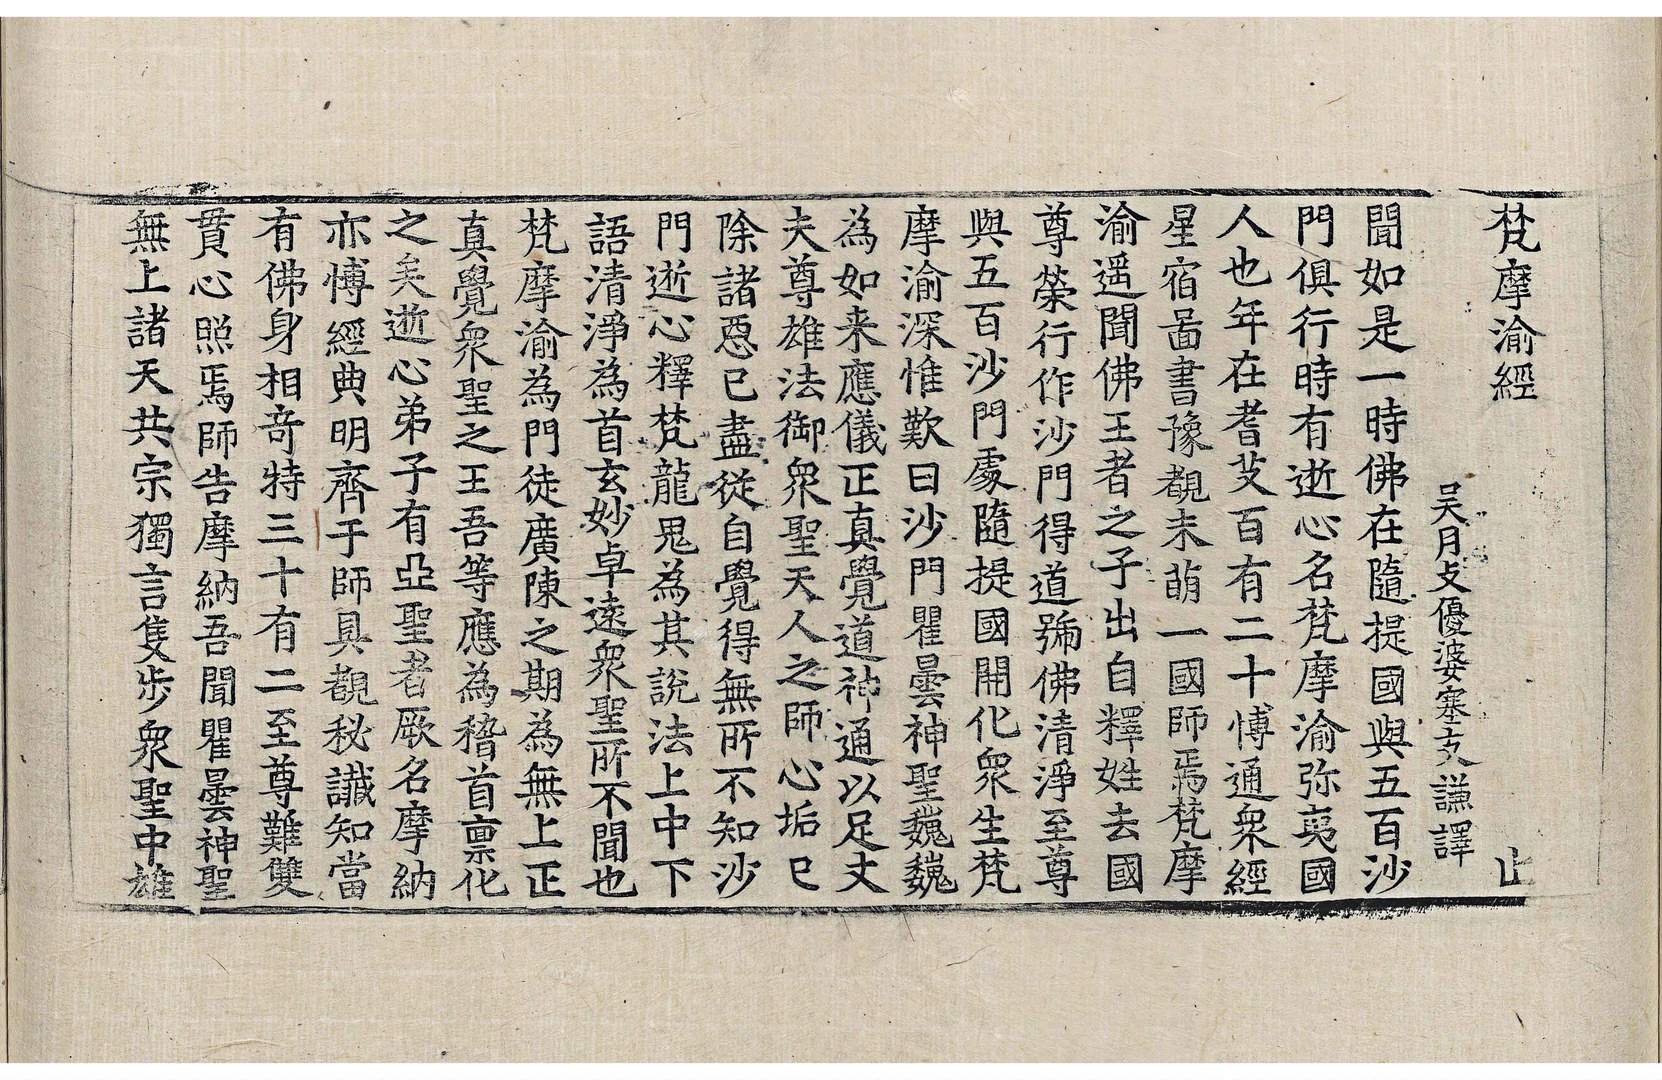 梵摩渝經 止
吳月支優婆塞支謙譯
聞如是一時佛在隨提國與五百沙
門俱行時有逝心名梵摩渝弥夷國
人也年在耆艾百有二十愽通衆經
星宿啚書豫覩未萌一國師焉梵摩
渝遥聞佛王者之子出自釋姓去國
尊榮行作沙門得道號佛清淨至尊
與五百沙門處隨提國開化衆生梵
摩渝深惟歎曰沙門瞿曇神聖巍巍
為如来應儀正真覺道神通以足丈
夫尊雄法御衆聖天人之師心垢已
除諸惡已盡從自覺得無所不知沙
門逝心釋梵龍鬼為其說法上中下
語清淨為首玄妙卓遠衆聖所不聞也
梵摩渝為門徒廣陳之期為無上正
真覺衆聖之王吾等應為稽首稟化
之矣逝心弟子有亞聖者厥名摩納
亦愽經典明齊于師具覩秘讖知當
有佛身相奇特三十有二至尊難雙
貫心照焉師告摩納吾聞瞿曇神聖
無上諸天共宗獨言隻步衆聖中雄